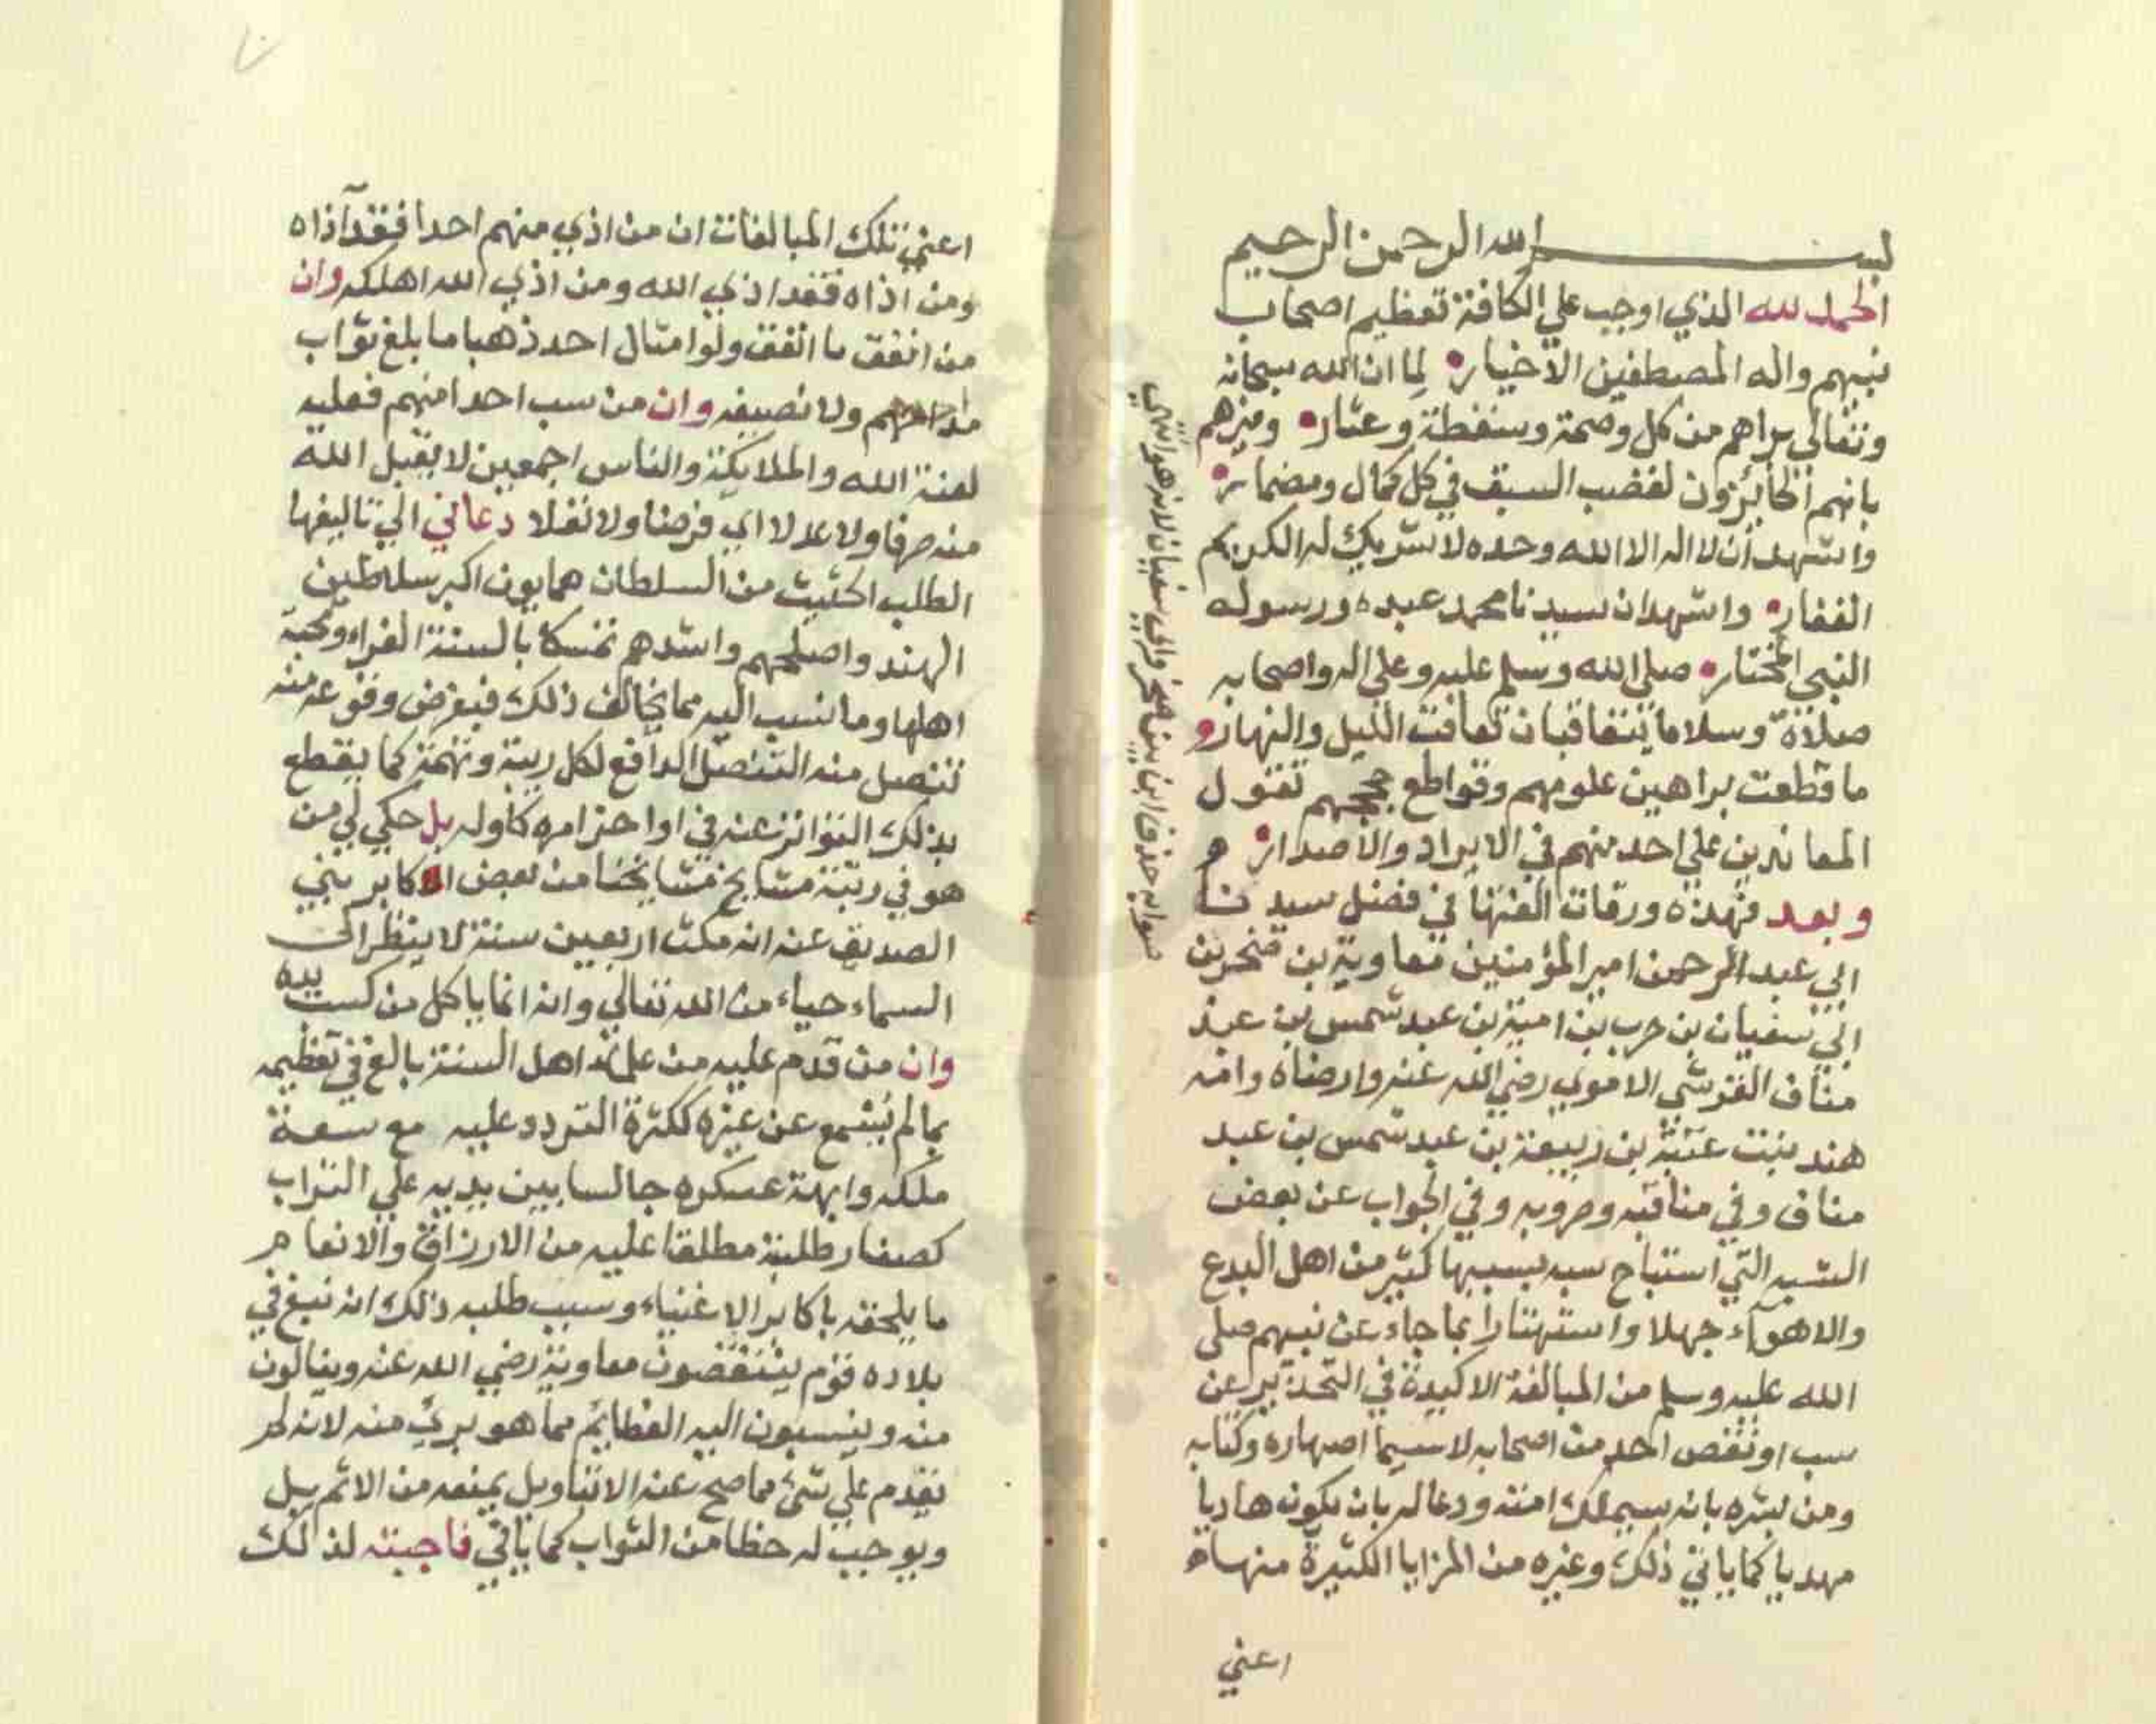 بسم الله الرحمن الرحيم
الحمد لله الذي اوجب علي الكافة تعظيم اصحاب
نبيهم واله المصطفين الاخيار لما ان الله سبحانه
وتعالى براهم من كل وصمة وسقطة وعثار وميزهم
بانهم الحائزون لقضب السبق في كل كمال ومضمار
واشهد أن لا اله الا الله وحده لا شريك له الكريم
الغفار واشهد ان سيدنا محمد عبده ورسوله
النبي المختار صلى الله وسلم عليه وعلي اله واصحابه
صلاة وسلاما يتعاقبان تعاقب الليل والنهار
ما قطعت براهين علومهم وقواطع حججهم تقول
المعاندين علي احد منهم في الايراد والاصدار ه
وبعد فهذه ورقات الفتها في فضل سيدنا
ابي عبد الرحمن امير المؤمنين معاوية بن صخر بن
ابي سفيان بن حرب بن امية بن عبد شمس بن عبد
مناف القرشي الاموي رضي الله عنه وارضاه وامه
هند بنت عتبة بن ربيعة بن عبد شمس بن عبد
مناف وفي مناقبه وحروبه وفي الجواب عن بعض
الشبه التي استباح سبه بسببها كثير من اهل البدع
والاهوآء جهلا واستهتارا بما جاء عن نبيهم صلى
الله عليه وسلم من المبالغة الاكيدة في التحذير عن
سب او تنقص احد من اصحابه لا سيما اصهاره وكتابه
ومن بشره بانه سيملك امته ودعا له بان يكون هاديا
مهديا كما ياتي ذلك وغيره من المزايا الكثيرة منها ه
اعني
صوابه حذف ابن بين صخر وابي سفيان لانه هو انتهي
اعني تلك المبالغات ان من اذي منهم احدا فقد آذاه
ومن اذاه فقد اذي الله ومن اذي الله اهلكه وان
من انفق ما انفق ولو امثال احد ذهبا ما بلغ ثواب
مد احدهم ولا نصيفه وان من سب احدا منهم فعليه
لعنة الله والملايكة والناس اجمعين لا يقبل الله
منه صرفا ولا عدلا اي فرضا ولا نفلا دعاني الي تاليفها
الطلب الحثيث من السلطان همايون اكبر سلاطين
الهند واصلحهم واشدهم تمسكا بالسنة الغراء ومحبة
اهلها وما نسب اليه مما يخالف ذلك فبفرض وقوعه منه
تنصل منه التنصل الدافع لكل ريبة وتهمة كما يقطع
بذلك التواتر عنه في اواخر امره كاوله بل حكي لي من
هو في رتبة مشايخ مشايخنا من بعض اكابر بني
الصديق عنه انه مكث اربعين سنة لا ينظر الى
السماء حياء من الله تعالي وانه انما ياكل من كسب يده
وان من قدم عليه من علماء اهل السنة بالغ في تعظيمه
بما لم يسمع عن غيره ككثرة التردد عليه مع سعة
ملكه وابهة عسكره جالسا بين يديه علي التراب
كصغار طلبته مطلقا عليه من الارزاق والانعام
ما يلحقه باكابر الاغنياء وسبب طلبه ذلك انه نبغ في
بلاده قوم ينتقصون معاوية رضي الله عنه وينالون
منه وينسبون اليه العظايم مما هو بريء منه لانه لم
يقدم علي شئ مما صح عنه الا بتاويل يمنعه من الاثم بل
ويوجب له حظا من الثواب كما ياتي فاجبته لذلك